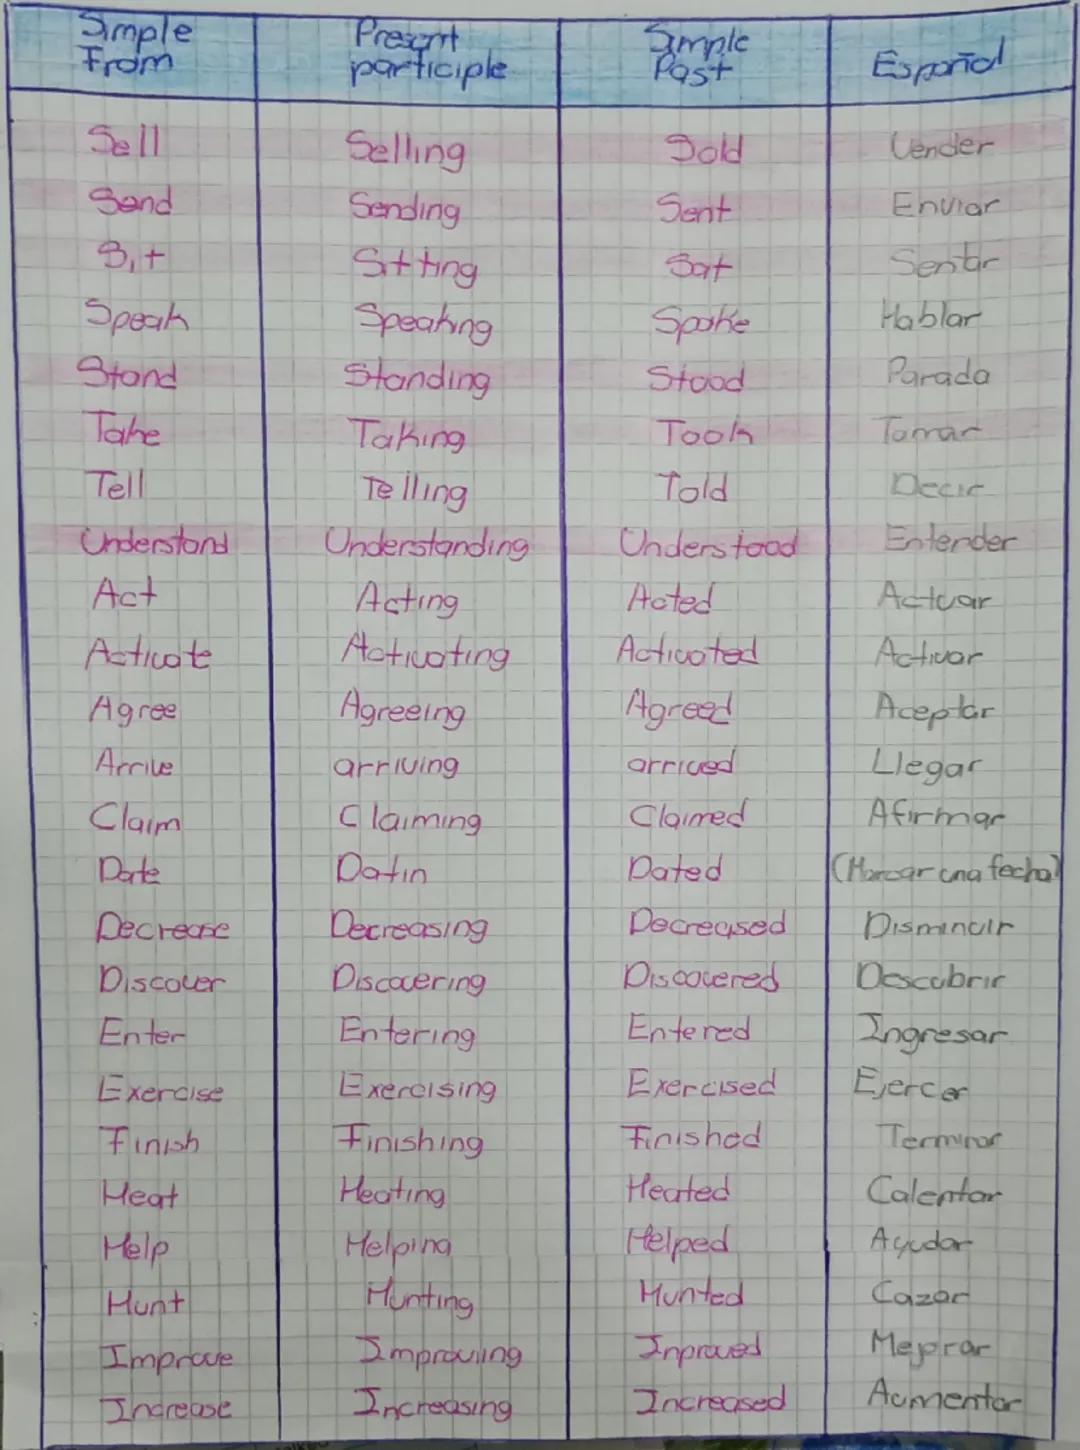 Simple From | Present participle | Simple Past | Español
Sell | Selling | Sold | Vender
Send | Sending | Sent | Enviar
Sit | Sitting | Sat | Sentar
Speak | Speaking | Spoke | Hablar
Stand | Standing | Stood | Parada
Take | Taking | Took | Tomar
Tell | Telling | Told | Decir
Understand | Understanding | Understood | Entender
Act | Acting | Acted | Actuar
Activate | Activating | Activated | Activar
Agree | Agreeing | Agreed | Aceptar
Arrive | arriving | arrived | Llegar
Claim | Claiming | Claimed | Afirmar
Date | Datin | Dated | (Marcar una fecha)
Decrease | Decreasing | Decreased | Disminuir
Discover | Discovering | Discovered | Descubrir
Enter | Entering | Entered | Ingresar
Exercise | Exercising | Exercised | Ejercer
Finish | Finishing | Finished | Terminar
Heat | Heating | Heated | Calentar
Help | Helping | Helped | Ayudar
Hunt | Hunting | Hunted | Cazar
Improve | Improviing | Inproved | Mejorar
Increase | Increasing | Increased | Aumentar